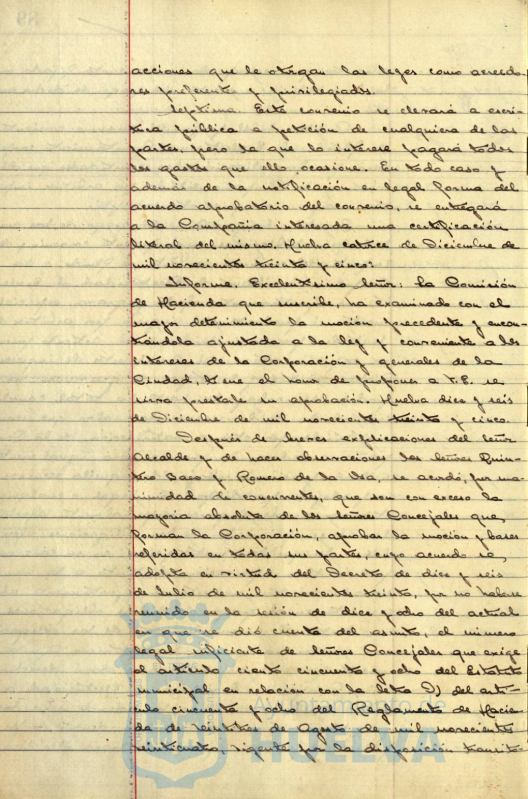 acciones que le otorgan las leyes como acreedo-
res preferente y privilegiados.
Septima. Este convenio se elevará a escri-
tura pública a petición de cualquiera de las
partes, pero la que lo interese pagará todos
los gastos que ello ocasione. En todo caso y
además de la notificación en legal forma del
acuerdo aprobatorio del convenio, se entregará
a la Compañia interesada una certificación
literal del mismo. Huelva catorce de Diciembre de
mil novecientos treinta y cinco:
Informe. Excelentísimo Señor: La Comisión
de Hacienda que suscribe, ha examinado con el
mayor detenimiento la moción precedente y encon-
trándola ajustada a la ley y conveniente a los
intereses de la Corporación y generales de la
Ciudad, tiene el honor de proponer a V.E. se
sirva prestarle su aprobación. Huelva diez y seis
de Diciembre de mil novecientos treinta y cinco.
Después de breves explicaciones del Señor
Alcalde y de hacer observaciones los Señores Quin-
tero Baez y Romero de la Osa, se acordó, por una-
nimidad de concurrentes, que son con exceso la
mayoria absoluta de los Señores Concejales que
forman la Corporación, aprobar la moción y bases
referidas en todas sus partes, cuyo acuerdo se
adopta en virtud del Decreto de diez y seis
de Julio de mil novecientos treinta, por no haberse
reunido en la sesión de diez y ocho del actual
en que se dió cuenta del asunto, el número
legal suficiente de Señores Concejales que exige
el artículo ciento cincuenta y ocho del Estatuto
municipal en relación con la letra del artí-
culo cincuenta y ocho del Reglamento de Hacien-
da de veintitres de Agosto de mil novecientos
veinticuatro, vigente por la disposición transito-
Ayuntamiento de
HUELVA